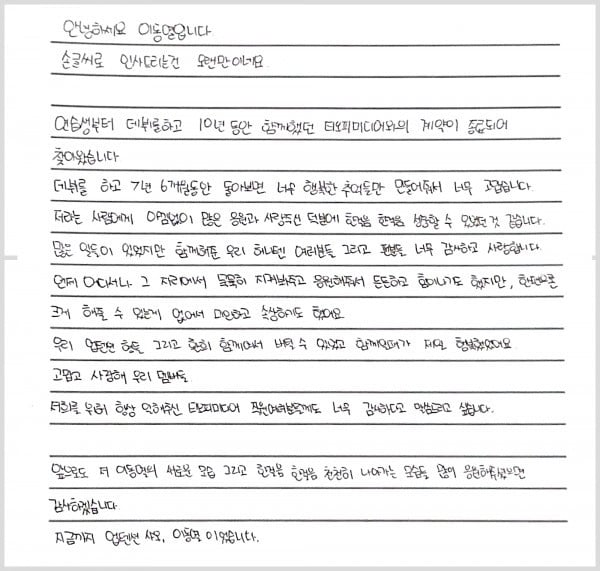 안녕하세요 이동열입니다
손글씨로 인사드리는건 오랜만이네요
연습생부터 데뷔를하고 10년 동안 함께했던 티오피미디어와의 계약이 종료되어
찾아왔습니다
데뷔를 하고 7년 6개월동안 돌아보면 너무 행복한 추억들만 만들어줘서 너무 고맙습니다.
저라는 사람에게 아낌없이 많은 응원과 사랑주신 덕분에 한걸음 한걸음 성장할 수 있었던 것 같습니다.
많은 일들이 있었지만 함께해준 우리 허니텐 여러분들 그리고 팬분들 너무 감사하고 사랑합니다.
언제 어디서나 그 자리에서 묵묵히 지켜봐주고 응원해줘서 든든하고 힘이나기도 했지만, 한편으론
크게 해줄 수 있는게 없어서 미안하고 속상하기도 했어요
우리 업텐션 형들 그리고 환희 함께여서 버틸 수 있었고 함께일때가 제일 행복했었어요
고맙고 사랑해 우리 멤버들
저희를 위해 항상 악해주신 티오피미디어 직원여러분들께도 너무 감사하다고 말씀드리고 싶습니다.
앞으로도 저 이동열의 새로운 모습 그리고 한걸음 한걸음 천천히 나아가는 모습들 많이 응원해주셨으면
감사하겠습니다
지금까지 업텐션 샤오, 이동열 이었습니다.